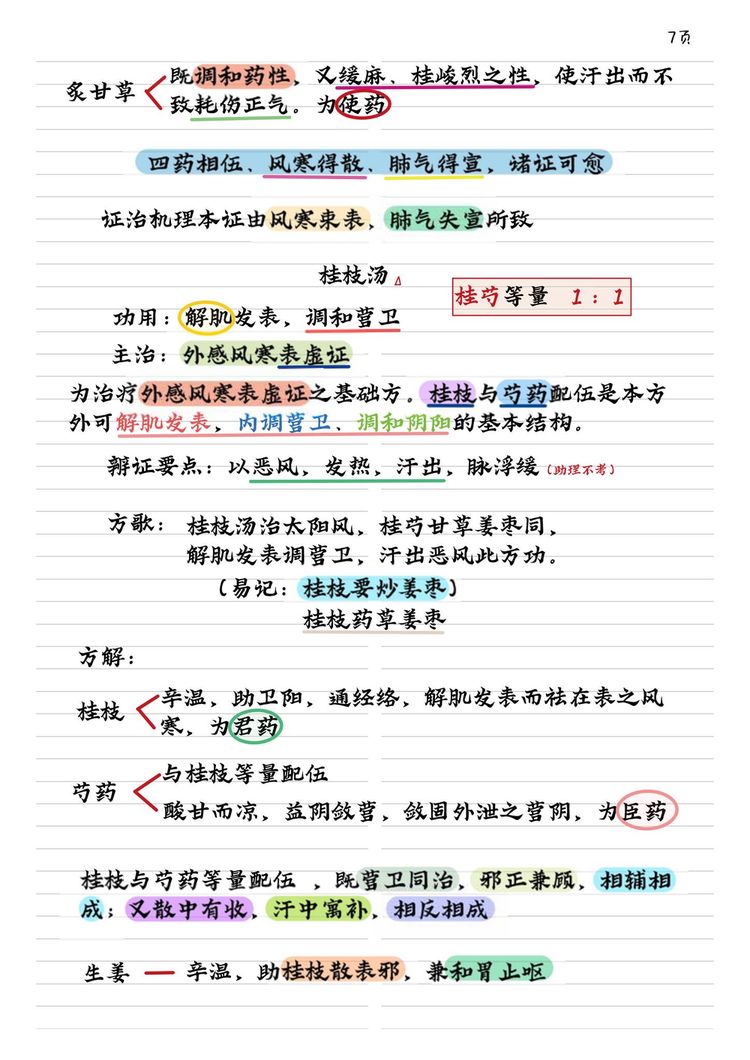 7页
炙甘草
既调和药性，又缓麻、桂峻烈之性，使汗出而不
致耗伤正气。为使药
四药相伍、风寒得散、肺气得宣，诸证可愈
证治机理本证由风寒束表，肺气失宣所致
桂枝汤
桂芍等量 1：1
功用：解肌发表，调和营卫
主治：外感风寒表虚证
为治疗外感风寒表虚证之基础方。桂枝与芍药配伍是本方
外可解肌发表，内调营卫、调和阴阳的基本结构。
辨证要点：以恶风，发热，汗出，脉浮缓（助理不考）
方歌： 桂枝汤治太阳风，桂芍甘草姜枣同，
解肌发表调营卫，汗出恶风此方功。
（易记：桂枝要炒姜枣）
桂枝药草姜枣
方解：
桂枝
辛温，助卫阳，通经络，解肌发表而祛在表之风
寒，为君药
芍药
与桂枝等量配伍
酸甘而凉，益阴敛营，敛固外泄之营阴，为臣药
桂枝与芍药等量配伍 ，既营卫同治，邪正兼顾，相辅相
成；又散中有收，汗中寓补，相反相成
生姜 — 辛温，助桂枝散表邪，兼和胃止呕